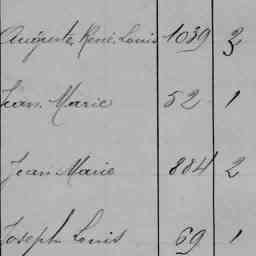 Auguste René Louis 1039 3
Jean Marie 52 1
Jean Marie 884 2
Joseph Louis 69 1